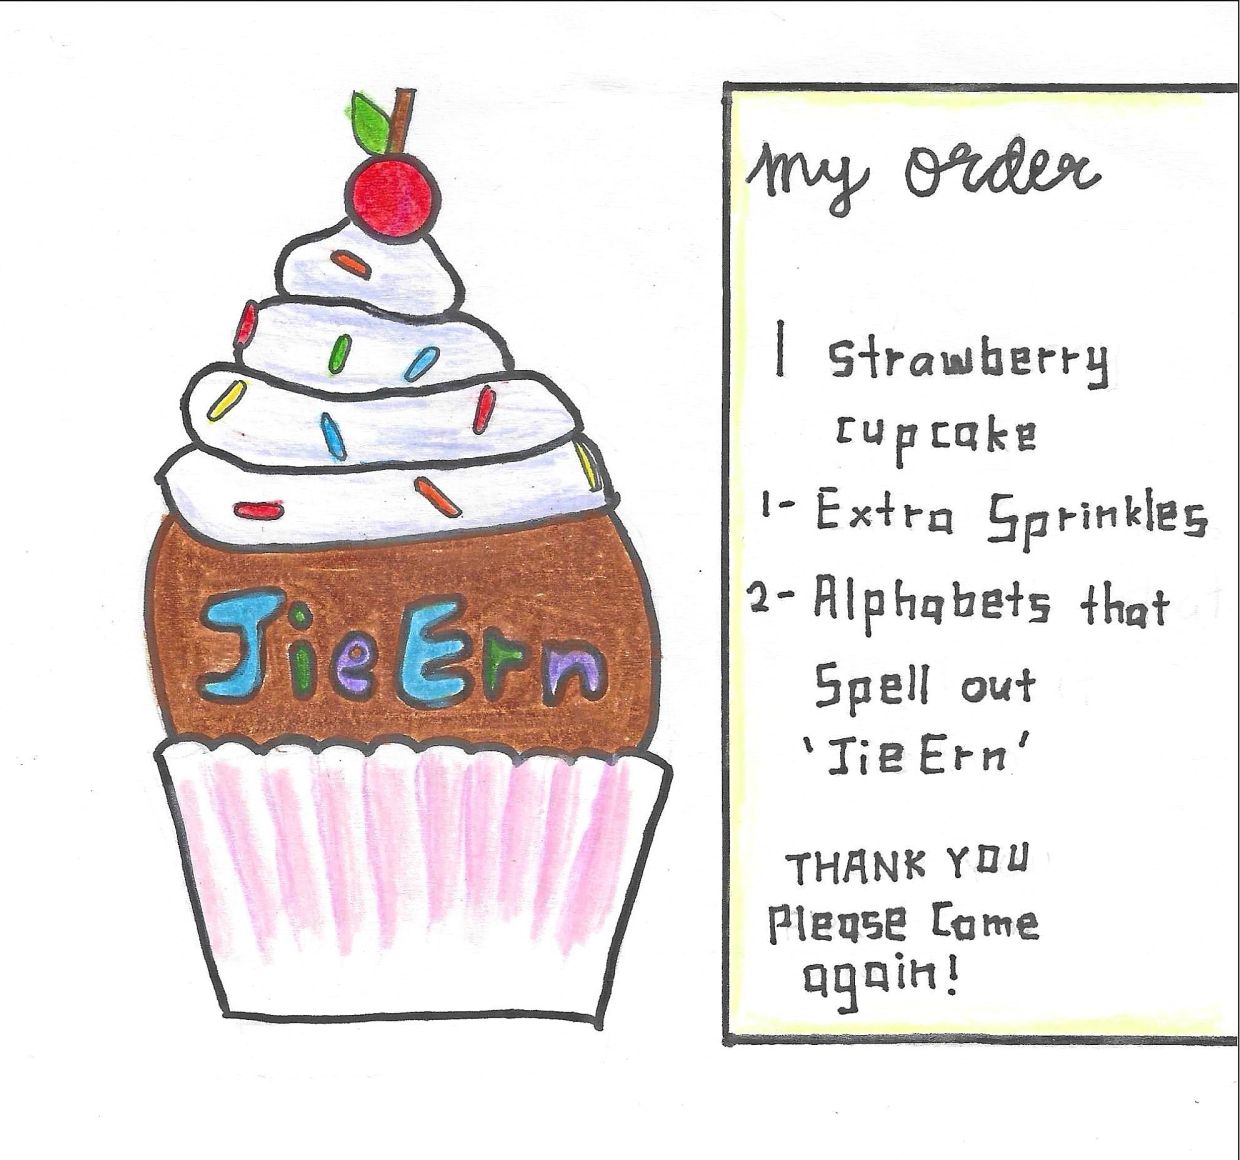 JieErn
my order
1 strawberry
cupcake
1- Extra Sprinkles
2- Alphabets that
Spell out
'JieErn'
THANK YOU
Please Come
again!